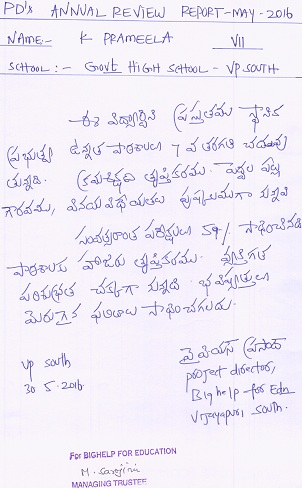 PD's ANNUAL REVIEW REPORT-MAY-2016
NAME:- K PRAMEELA VII
SCHOOL:- Govt HIGH SCHOOL - VP SOUTH
ఈ విద్యార్థిని ప్రస్తుతము స్థానిక
ప్రభుత్వ ఉన్నత పాఠశాలలో 7 వ తరగతి చదువు
తున్నది. క్రమశిక్షణ తృప్తికరము. పెద్దల పట్ల
గౌరవము, వినయ విధేయతలు పుష్కలముగా ఉన్నవి
సంవత్సరాంత పరీక్షలో 59% సాధించినది
పాఠశాలకు హాజరు తృప్తికరము. వ్యక్తిగత
పరిశుభ్రత చక్కగా ఉన్నది. భవిష్యత్తులో
మెరుగైన ఫలితాలు సాధించగలదు.
vp south
30.5.2016
ప్రసాద్
project director,
Bighelp-for Edn
Vijayapuri south.
For BIGHELP FOR EDUCATION
M. Sarojini
MANAGING TRUSTEE